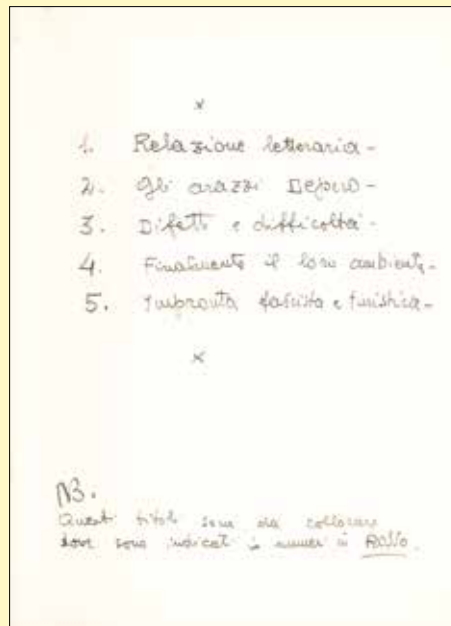 x
1. Relazione letteraria-
2. Gli arazzi Depero-
3. Difetti e difficoltà-
4. Finalmente il loro ambiente-
5. Impronta fascista e turistica-
x
NB.
Questi titoli sono da collocare
dove sono indicati i numeri in ROSSO.